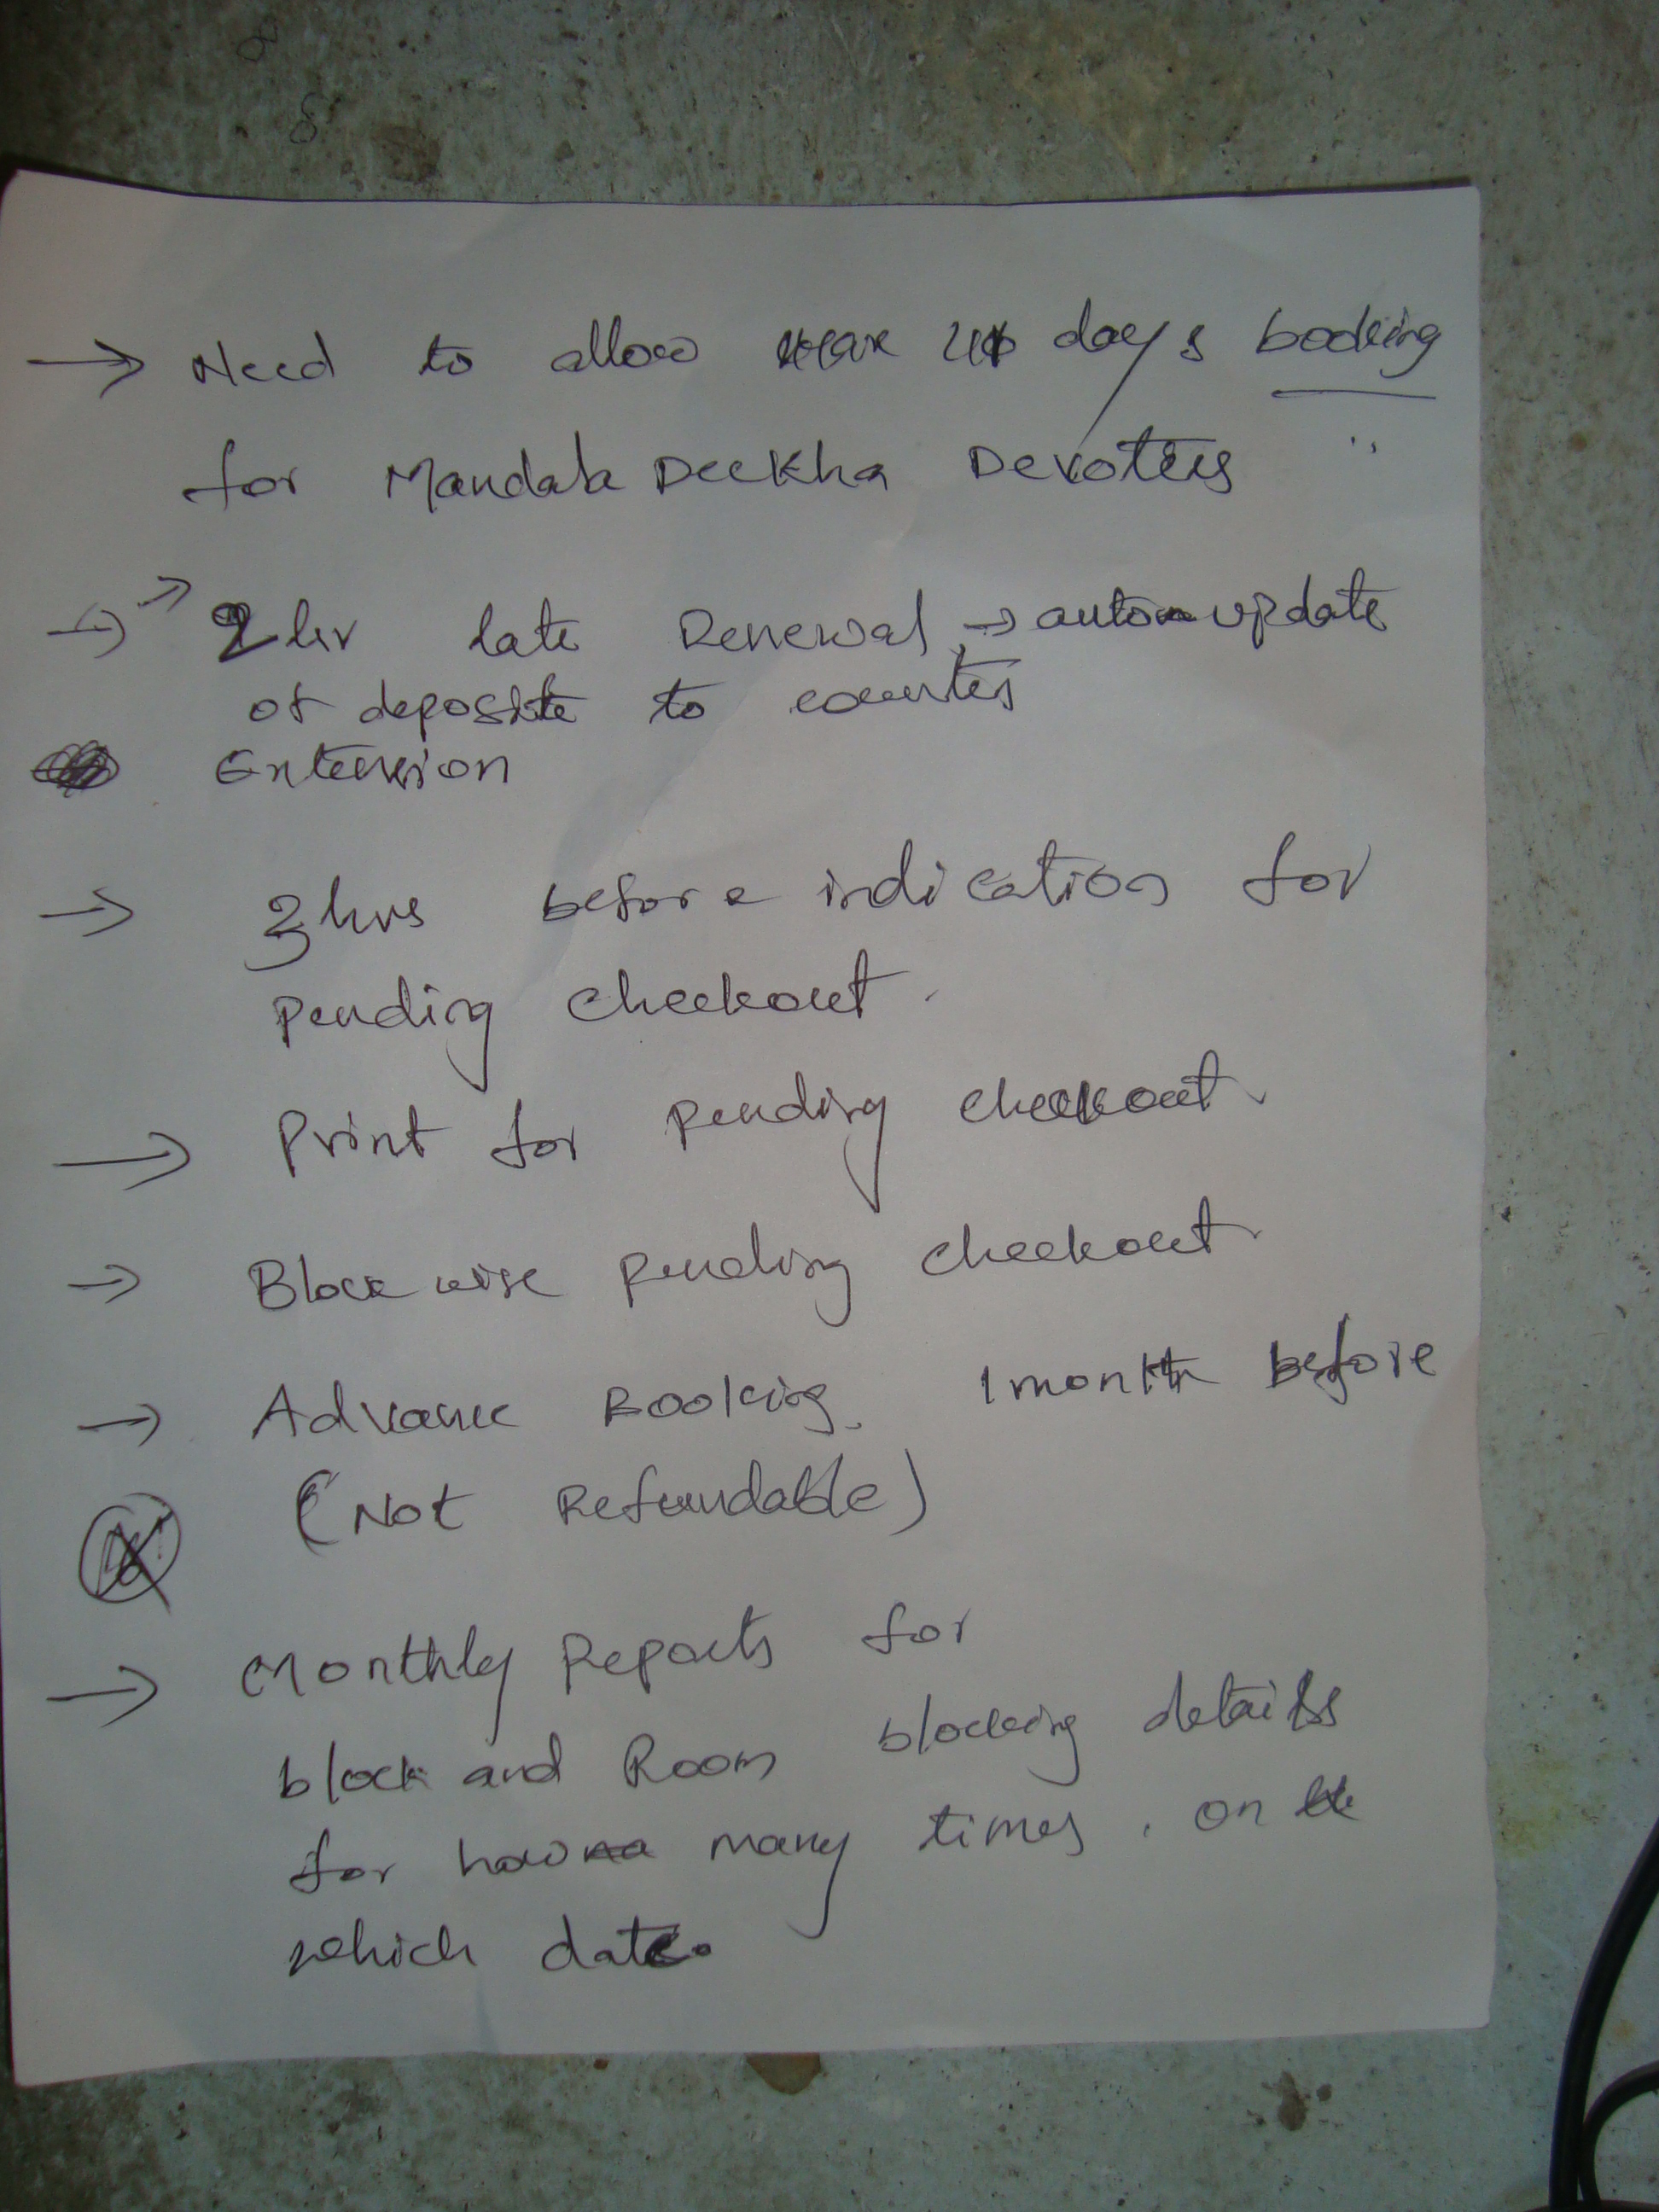 → Need to allow days booking
for Mandala Deekha Devotees
→ → 2 hr late Renewal → auto update
of deposite to counter
Extension
→ 3 hrs before indication for
pending checkout.
→ Print for pending checkout.
→ Block wise pending checkout.
→ Advance Booking. 1 month before
(Not Refundable)
→ Monthly Reports for
block and Room blocking details
for how many times, on
which date.